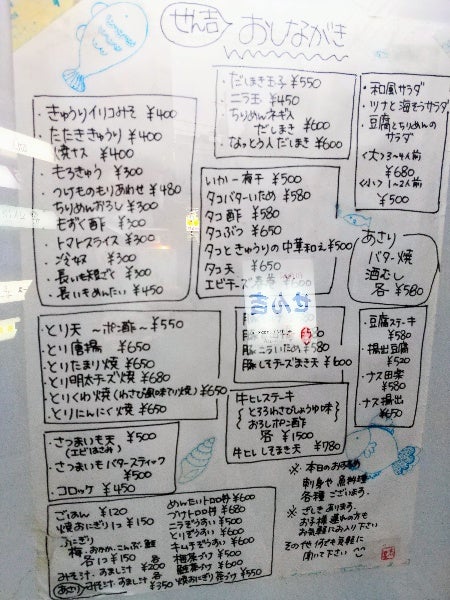 ぜん吉
おしながき
・きゅうりイリコみそ ¥400
・たたききゅうり ¥400
・焼ナス ¥400
・もろきゅう ¥300
・つけものもりあわせ ¥480
・ちりめんおろし ¥300
・もずく酢 ¥300
・トマトスライス ¥300
・冷奴 ¥300
・長いも ¥300
・長いもめんたい ¥450
・だしまき玉子 ¥550
・ニラ玉 ¥450
・ちりめんネギ入
だしまき ¥600
・なっとう入だしまき ¥600
・和風サラダ
・ツナと海そうサラダ
・豆腐とちりめんの
サラダ
<大>3~4人前
¥680
<小>1~2人前
¥500
いか一夜干 ¥500
タコバターいため ¥580
タコ酢 ¥580
タコぶつ ¥650
タコときゅうりの中華和え ¥500
タコ天 ¥650
エビチーズ春巻 ¥600
あさり
バター焼
酒むし
各 ¥580
・とり天 ~ポン酢~ ¥550
・とり唐揚 ¥650
・とりたまり焼 ¥650
・とり明太チーズ焼 ¥680
・とりくわ焼(わさび風味てり焼) ¥650
・とりにんにく焼 ¥650
ぜん吉
豚
豚ニラいため ¥580
豚しそチーズまき天 ¥600
・豆腐ステーキ
¥580
・揚出豆腐
¥520
・ナス田楽
¥580
・ナス揚出
¥650
牛ヒレステーキ
とろろわさびしょうゆ味
おろしポン酢
各 ¥1500
牛ヒレしそまき天 ¥780
・さつまいも天 ¥500
(エビはさみ)
・さつまいもバタースティック
¥500
・コロッケ ¥450
・ごはん ¥120
・焼おにぎり1コ ¥150
・おにぎり
梅、おかか、こんぶ、鮭
各1コ ¥150
みそ汁、すまし汁 ¥200
あさりみそ汁、すまし汁 各¥350
めんたいトロロ丼 ¥600
づけトロロ丼 ¥680
ニラぞうすい ¥500
とりぞうすい ¥600
キムチぞうすい ¥600
梅茶づけ ¥500
鮭茶づけ ¥600
焼おにぎり茶づけ ¥550
※本日のおすすめ
刺身や魚料理
各種ございます。
※ざしきあります。
お子様連れの方も
お気軽にお入り下さい
その他何でも気軽に
聞いて下さい